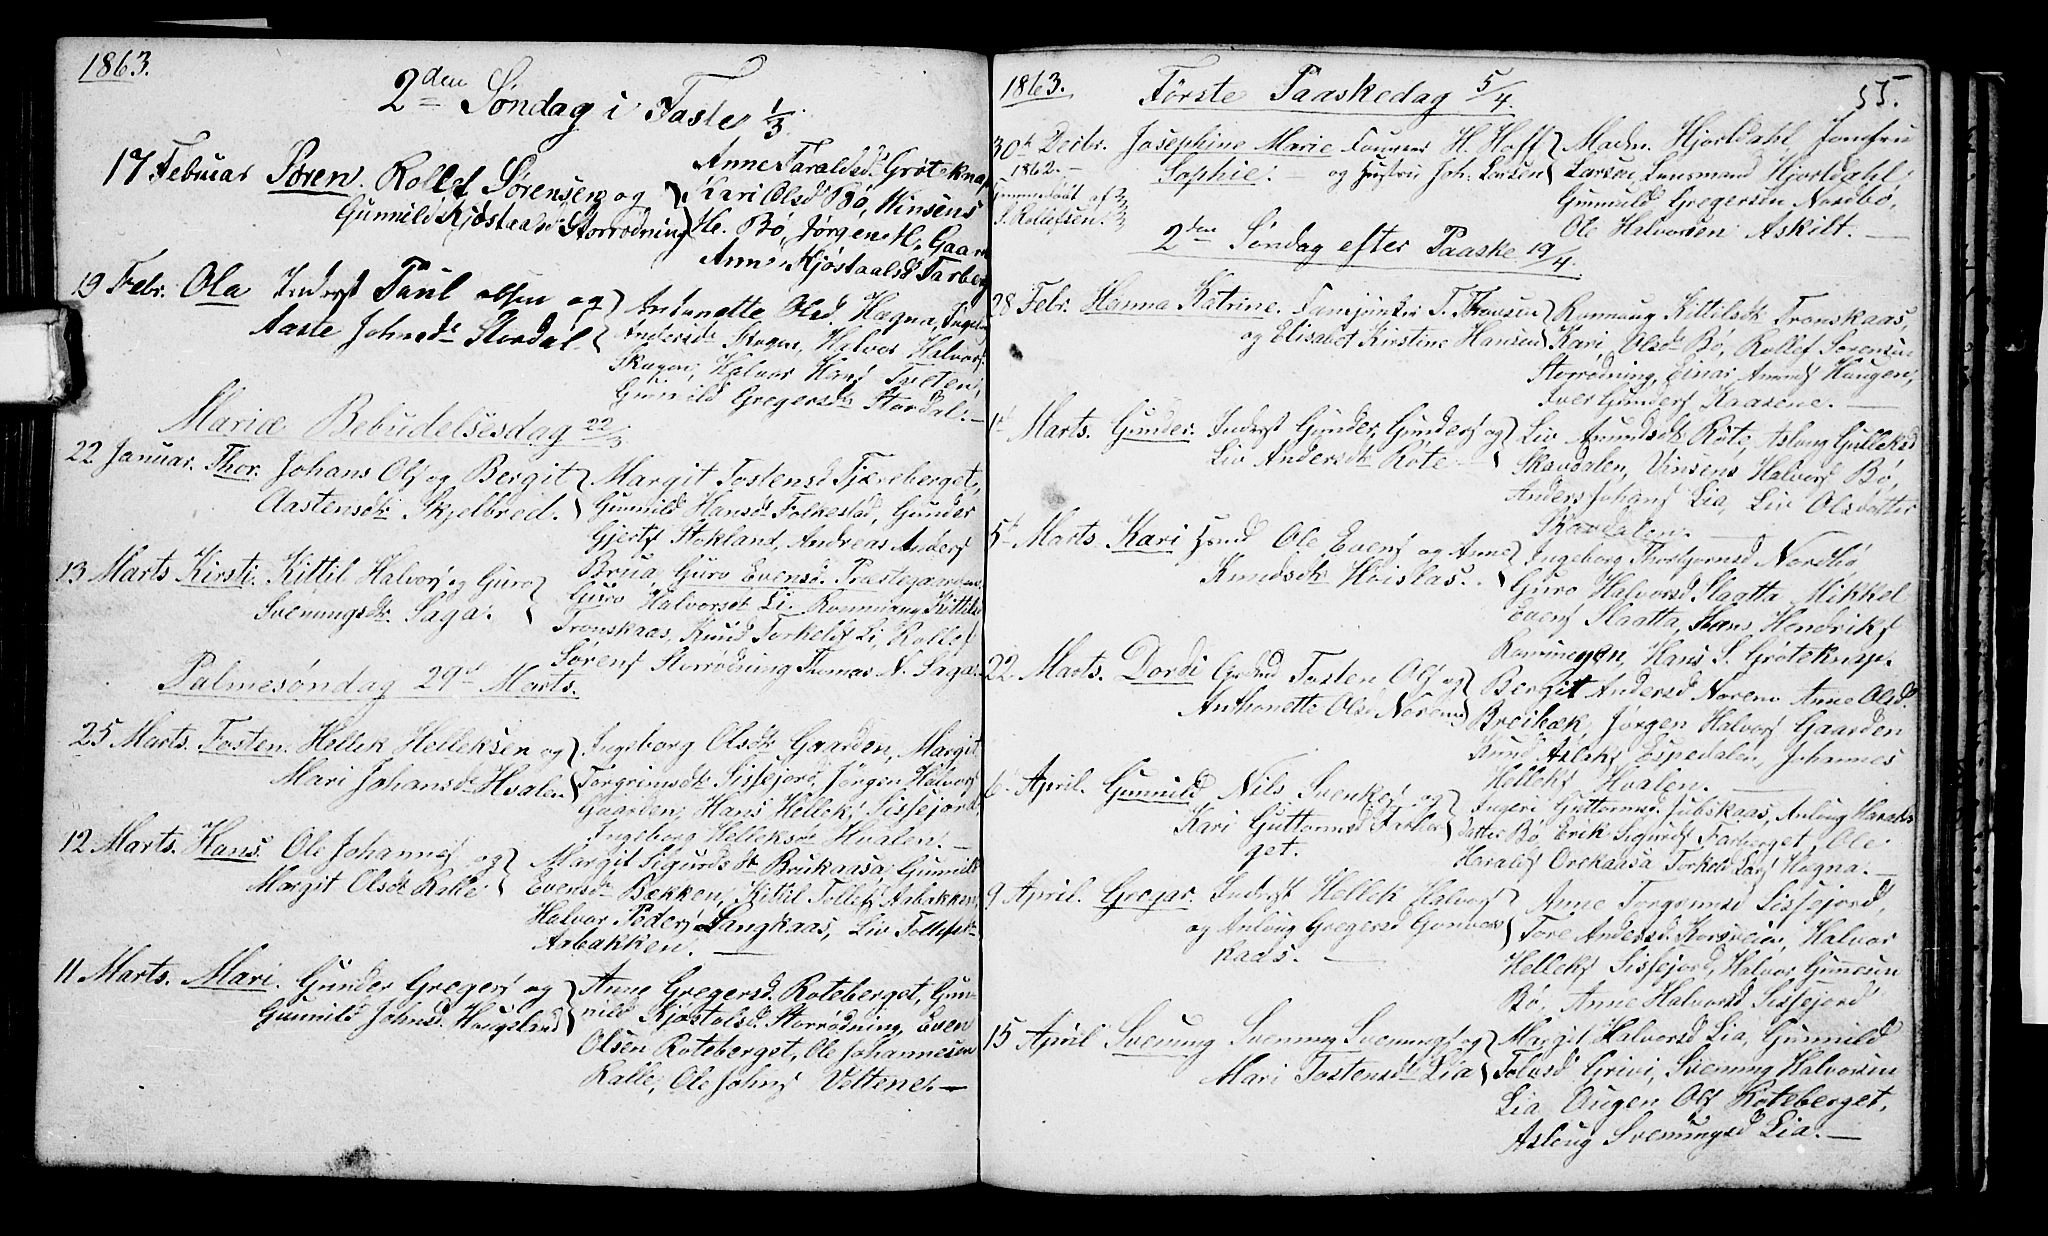 1863.
2den Søndag i Faste 1/3.
17 Februar Søren. Rollef Sørensen og
Gunnild Kjøstaalsd Storrødning
Anne Taraldsd. Grøteknap
Kari Olsd Bø, Winsens
He. Bø, Jørgen H. Gaarn
Anne Kjøstaalsd Farberg
19 Febr. Ola Inderst Paul olsen og
Aaste Johnsdr Stordal.
Antonette Olsd Hægna,
Andersdr Skogen, Halvor Halvors
Skogen, Halvor Hans Tveten,
Gunnild Gregersdr Stordal. —
Mariæ Bebudelsesdag 22/3
22 Januar. Thor. Johans Ols og Bergit
Aastensdtr Skjelbred.
Margit Tostensd Tjæreberget,
Gunnild Hansdr Folkestad, Gunder
Gjerts Stokland, Andreas Anders
Brua, Guro Evensdr Præstegaarden
13 Marts Kirsti. Kittil Halvors og Guro
Sveningsdtr Saga.
Guro Halvorsdt Li. Ronnaug Kittilsd
Tronskaas, Knud Torkelds Li, Rollef
Sørens Storrødning Thomas N. Saga.
Palmesøndag 29d Marts.
25 Marts. Tosten. Hellek Helleksen og
Mari Johansdr Hvalen
Ingeborg Olsdtr Gaarden, Margit
Torgrimsdtr Sissejord, Jørgen Halvors
Gaarden, Hans Helleks Sissejord,
Ingeborg Helleksdr Hvalen. —
12 Marts. Hans. Ole Johannes og
Margit Olsdtr Rake
Margit Sigurdsdr Brukaasa, Gunnild
Evensdr Bækken, Kittil Tollefs Aabakken
Halvor Peders Langkaas, Liv Tollefsdtr
Aabakken. —
11 Marts. Mari. Gunder Gregers og
Gunnild Johnsd. Haugelund
Anne Gregersd. Roteberget, Gun-
nild Kjøstolsd. Storrødning, Even
Olsen Roteberget, Ole Johannesen
Kalle, Ole Johns Veltene. —
1863. Første Paaskedag 5/4. 55.
30t Decbr. Josephine Marie H. Hoff
1862. — Sophie. — og Hustru Joh. Larsen
af
S. Rollefsen.
Madm. Hjorldahl Jomfru
Larsen Lensmand Hjorldahl
Gunnild Gregersen Nordbø,
Ole Halvorsen Askilt. —
2den Søndag efter Paaske 19/4.
28 Febr. Hanna Katrine. T. Thovsen
og Elisabet Kirstine Hansen
Ronnaug Kittilsdtr Tronskaas,
Kari Olsdr Bø, Rollef Sørensen
Storrødning, Einar Amunds Haugen,
Iver Gunders Kaasene. —
1t Marts. Gunder. Inderst Gunder Gunders og
Liv Andersdtr Rote. —
Liv Amundsdtr Rote, Aslaug Gulleksd
Skavdalen, Vinsens Halvors Bø,
Anders Johans Lia, Liv Olsdatter
Skavdalen. —
5t Marts Kari Ole Evens og Anne
Knudsdtr Hoislas.
Ingeborg Thorbjørnsd Nordbø
Guro Halvorsd. Slaatta Mikkel
Evens Slaatta, Hans Hendriks
Hans S. Grøteknap.
22. Marts. Dordi Tosten Ols og
Anthonette Olsd Norene
Bergit Andersd Norene Anne Olsd.
Breibæk, Jørgen Halvors Gaarden
Knud Asleks Espedalen, Johannes
Helleks Hvalen. —
6t April. Gunnild Nils Svenkes og
Kari Guttormsd Farber
get.
Ingeri Guttormsd Jubskaas, Anlaug Haralds
datter Bø Erik Sigurds Farberget, Ole
Haralds Orekaasa Torkel Lars Hægna. —
9 April. Gregar. Inderst Hellek Halvors
og Anlaug Gregersd Gonvers
kaas. —
Anne Torgrimsd Sissejord,
Tore Andersd. Korsveien, Halvor
Helleks Sissejord, Halvor Gunnesen
Bø, Anne Halvorsd Sissejord
15 April Svenung Svenning Svennings og
Mari Tostensdtr Lia
Margit Halvorsd Lia, Gunnild
Tolvsd Grivi, Svenning Halvorsen
Lia Augen Ols Roteberget,
Aslaug Svenningsd Lia. —